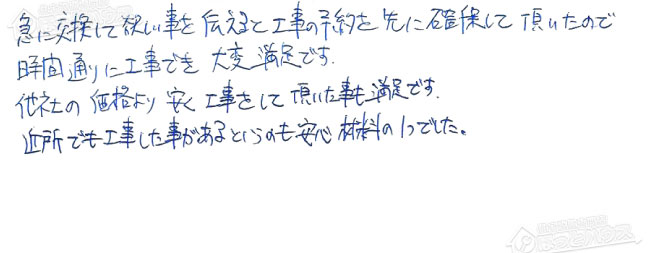 急に交換して欲しい事を伝えると工事の予約を先に確保して頂いたので
時間通りに工事でき 大変満足です.
他社の価格より安く工事をして頂いた事も満足です.
近所でも工事した事があるというのも安心材料の1つでした。